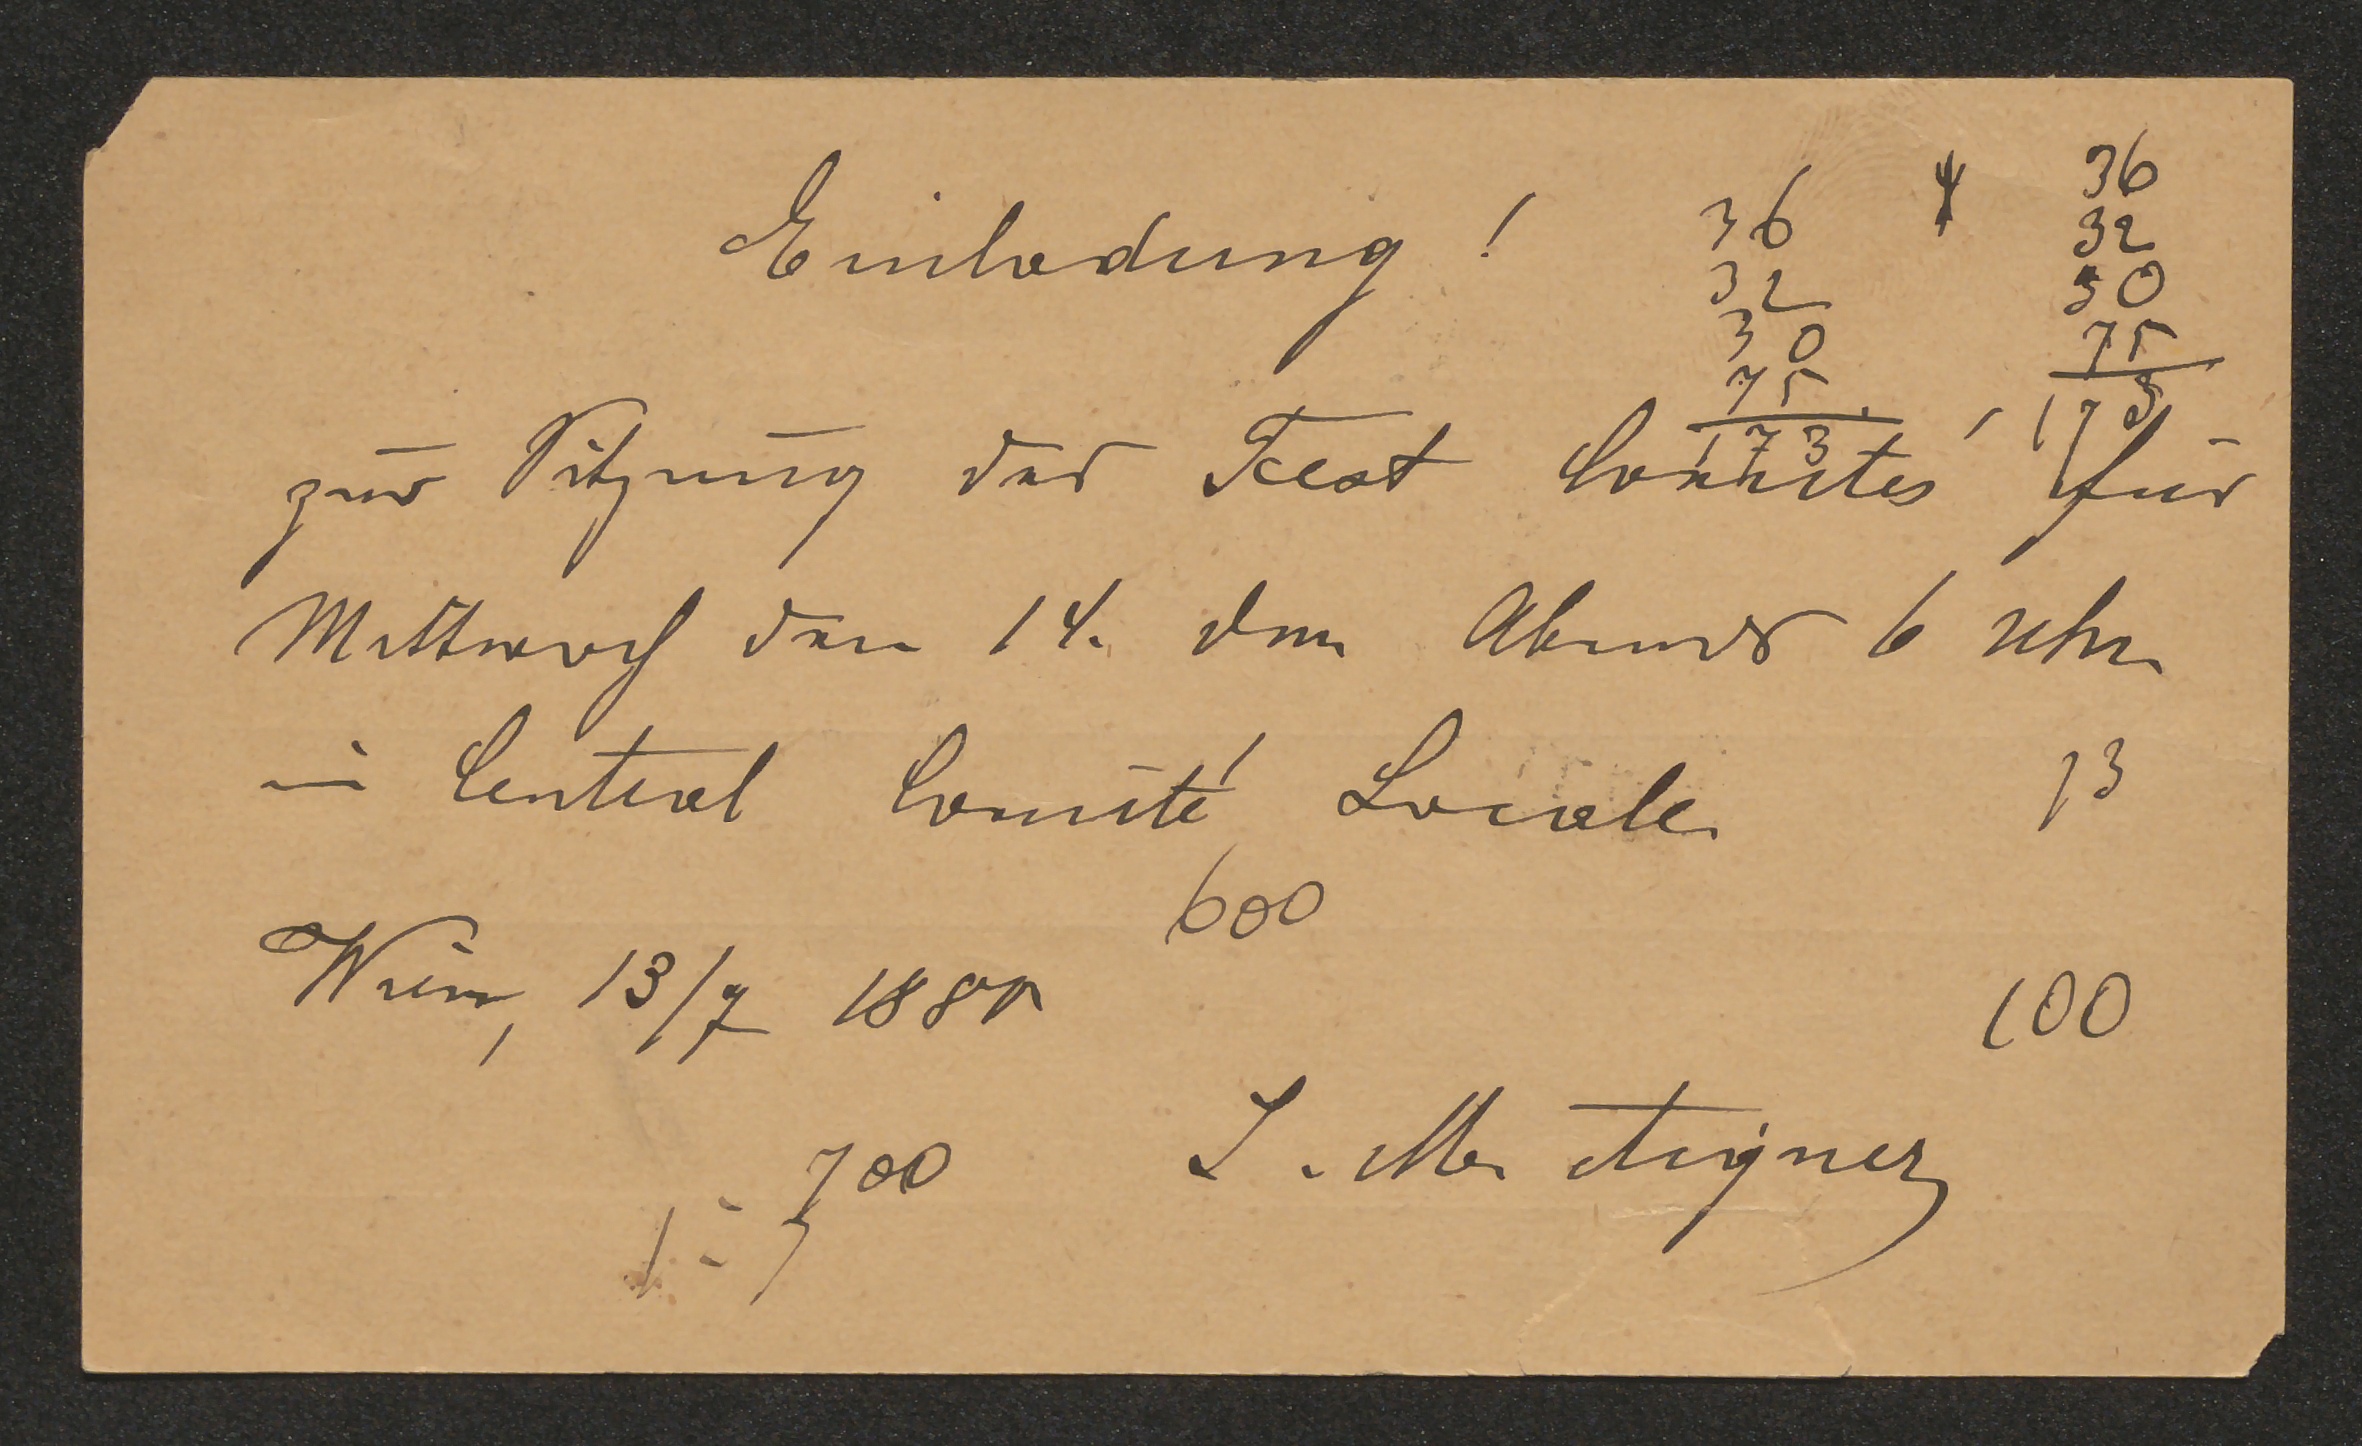 Einladung!
36
32
30
75
173
36
32
30
75
173
zur Sitzung des Fest Comités für
Mittwoch den 14. dm. Abends 6 Uhr
in Central Comité Locale.
13
600
Wien, 13/7 188
100
700
L. M. Aigner